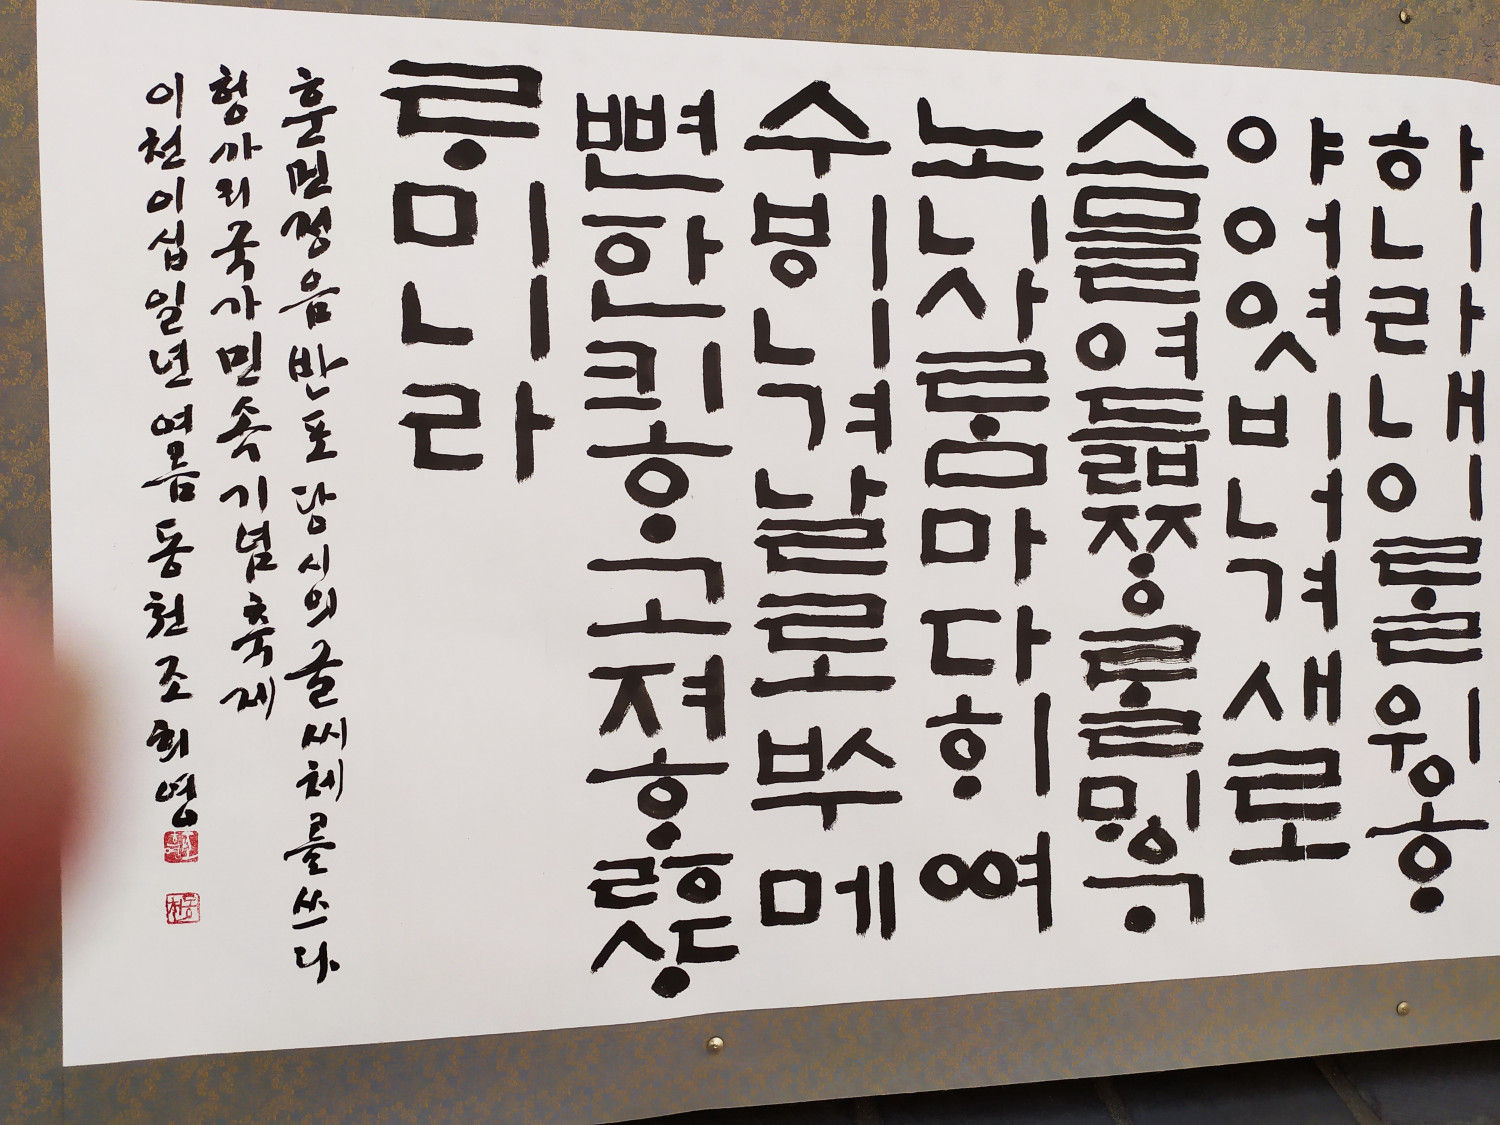 하니라내이ᄅᆞᆯ윙ᄒᆞ
야어엿비너겨새로
스믈여듧ᄍᆞᆼᄅᆞᆯᄆᆡᇰᄀᆞ
노니사ᄅᆞᆷ마다ᄒᆡᅇᅧ
수ᄫᅵ니겨날로ᄡᅮ메
뼌한킈ᄒᆞ고져ᄒᆞᇙᄯᆞ
ᄅᆞ미니라
훈민정음 반포 당시의 글씨체를 쓰다.
헝가리 국가 민속 기념 축제
이천이십일년 여름 동천 조희영